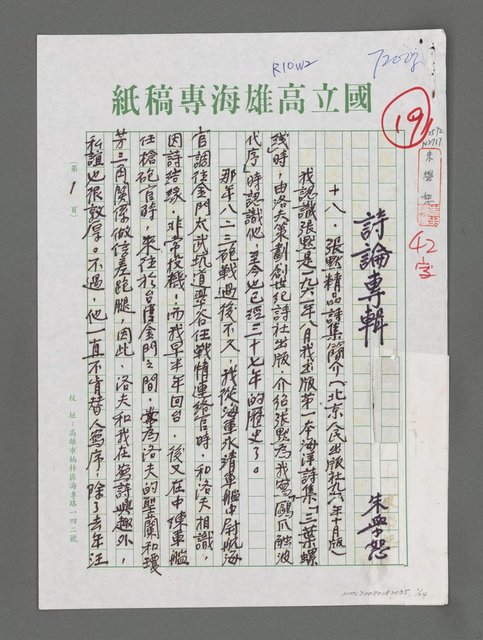 R10W2
720字
國立高雄海專稿紙
19
2572
朱學恕
42字
詩論專輯
朱學恕
十八、張默精品詩集簡介(北京人民出版社 年十月版)
我認識張默是一九六一年八月我出版第一本海洋詩集「三葉螺
线」時,由洛夫策劃創世紀詩社出版,介紹張默為我寫「鷗爪触波
代序」時認識他,至今也已經三十七年的歷史了。
那年八二三砲戰過後不久,我從海軍永靖軍艦中尉航海
官調往金門太武坑道翠谷任戰情連絡官時,和洛夫相識,
因詩結緣,非常投機!而我早半年回台,後又在中練軍艦
任槍砲官時,來往於台澎金門之間,常為洛夫的聖蘭和瓊
芳三角關係做信差跑腿,因此,洛夫和我在寫詩興趣外,
私誼也很敦厚。不過,他一直不肯替人寫序,除了去年汪
(第 1 頁)
校址:高雄市楠梓區海專路一四二號